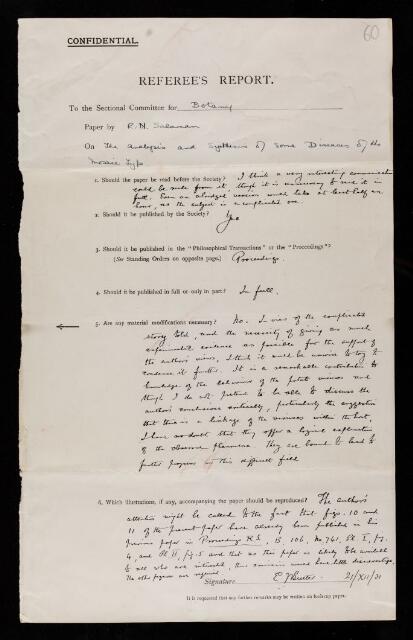 60
CONFIDENTIAL.
REFEREE'S REPORT.
To the Sectional Committee for Botany
Paper by R. N. Salaman
On The Analysis and Synthesis of Some Diseases of the
Mosaic Type
1. Should the paper be read before the Society? I think a very interesting communication
could be made from it, though it is unnecessary to read it in
full. Even an abridged version would take at least half an
hour, as the subject is a complicated one.
2. Should it be published by the Society? Yes
3. Should it be published in the "Philosophical Transactions" or the "Proceedings"?
(See Standing Orders on opposite page.) Proceedings.
4. Should it be published in full or only in part? In full.
5. Are any material modifications necessary? No. In view of the complicated
story told, and the necessity of giving as much
experimental evidence as possible for the support of
the author's views, I think it would be unwise to try to
condense it further. It is a remarkable contribution to
knowledge of the behaviour of the potato viruses and
though I do not pretend to be able to discuss the
author's conclusions critically, particularly the suggestion
that there is a linkage of the viruses within the host,
I have no doubt that they offer a logical explanation
of the observed phenomena. They are bound to lead to
further progress in this difficult field
6. Which illustrations, if any, accompanying the paper should be reproduced? The author's
attention might be called to the fact that figs. 10 and
11 of the present paper have already been published in his
previous paper in Proceedings R.S., B, 106, No. 741, Pl. I, fig.
4, and Pl. II, fig. 5 and that as this paper is likely to be available
to all who are interested, their omission would have little disadvantage.
The other figures are required.
Signature E. J. Butler 21/XII/31
It is requested that any further remarks may be written on foolscap paper.